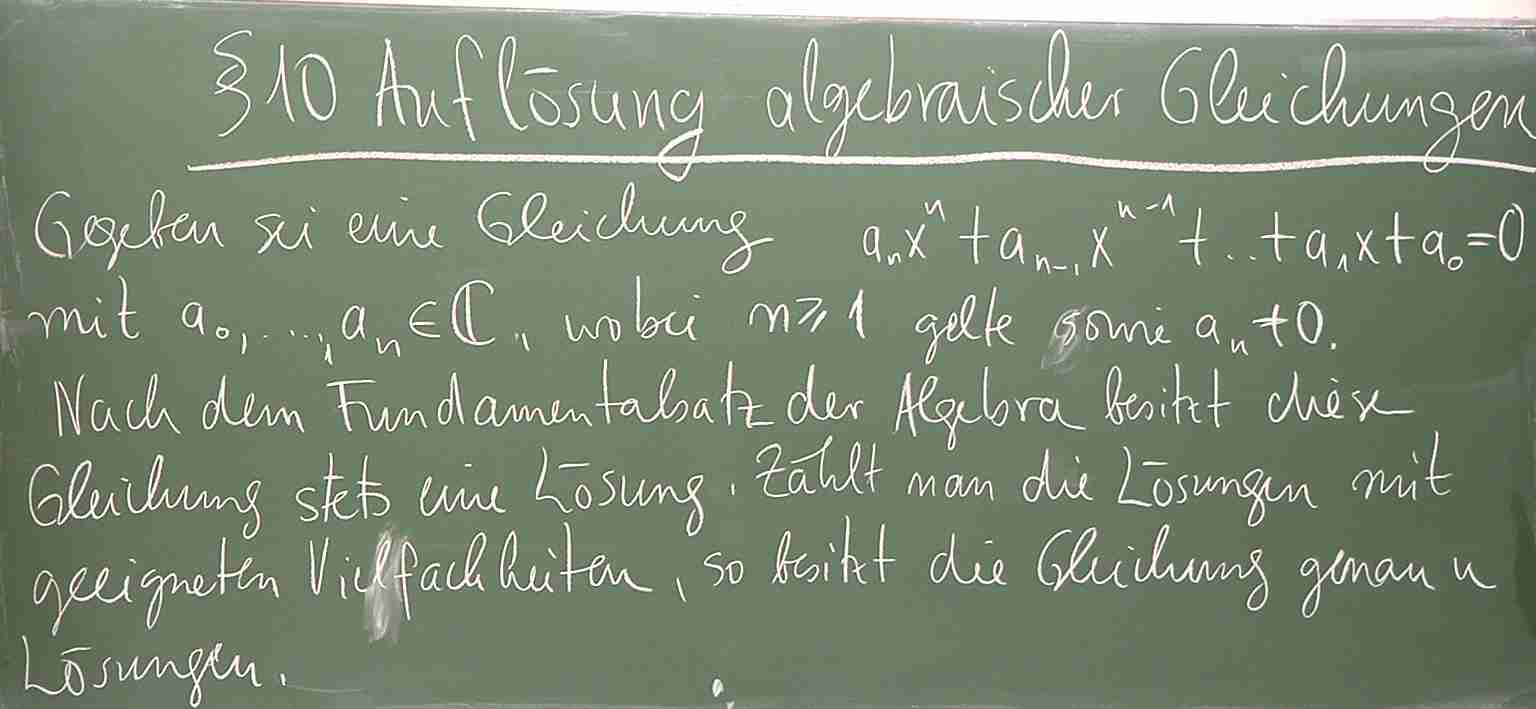 §10 Auflösung algebraischer Gleichungen
Gegeben sei eine Gleichung aₙxⁿ + aₙ₋₁xⁿ⁻¹ + .. + a₁x + a₀ = 0
mit a₀, ..., aₙ ∈ ℂ, wobei n ⩾ 1 gelte sowie aₙ ≠ 0.
Nach dem Fundamentalsatz der Algebra besitzt diese
Gleichung stets eine Lösung. Zählt man die Lösungen mit
geeigneten Vielfachheiten, so besitzt die Gleichung genau n
Lösungen.